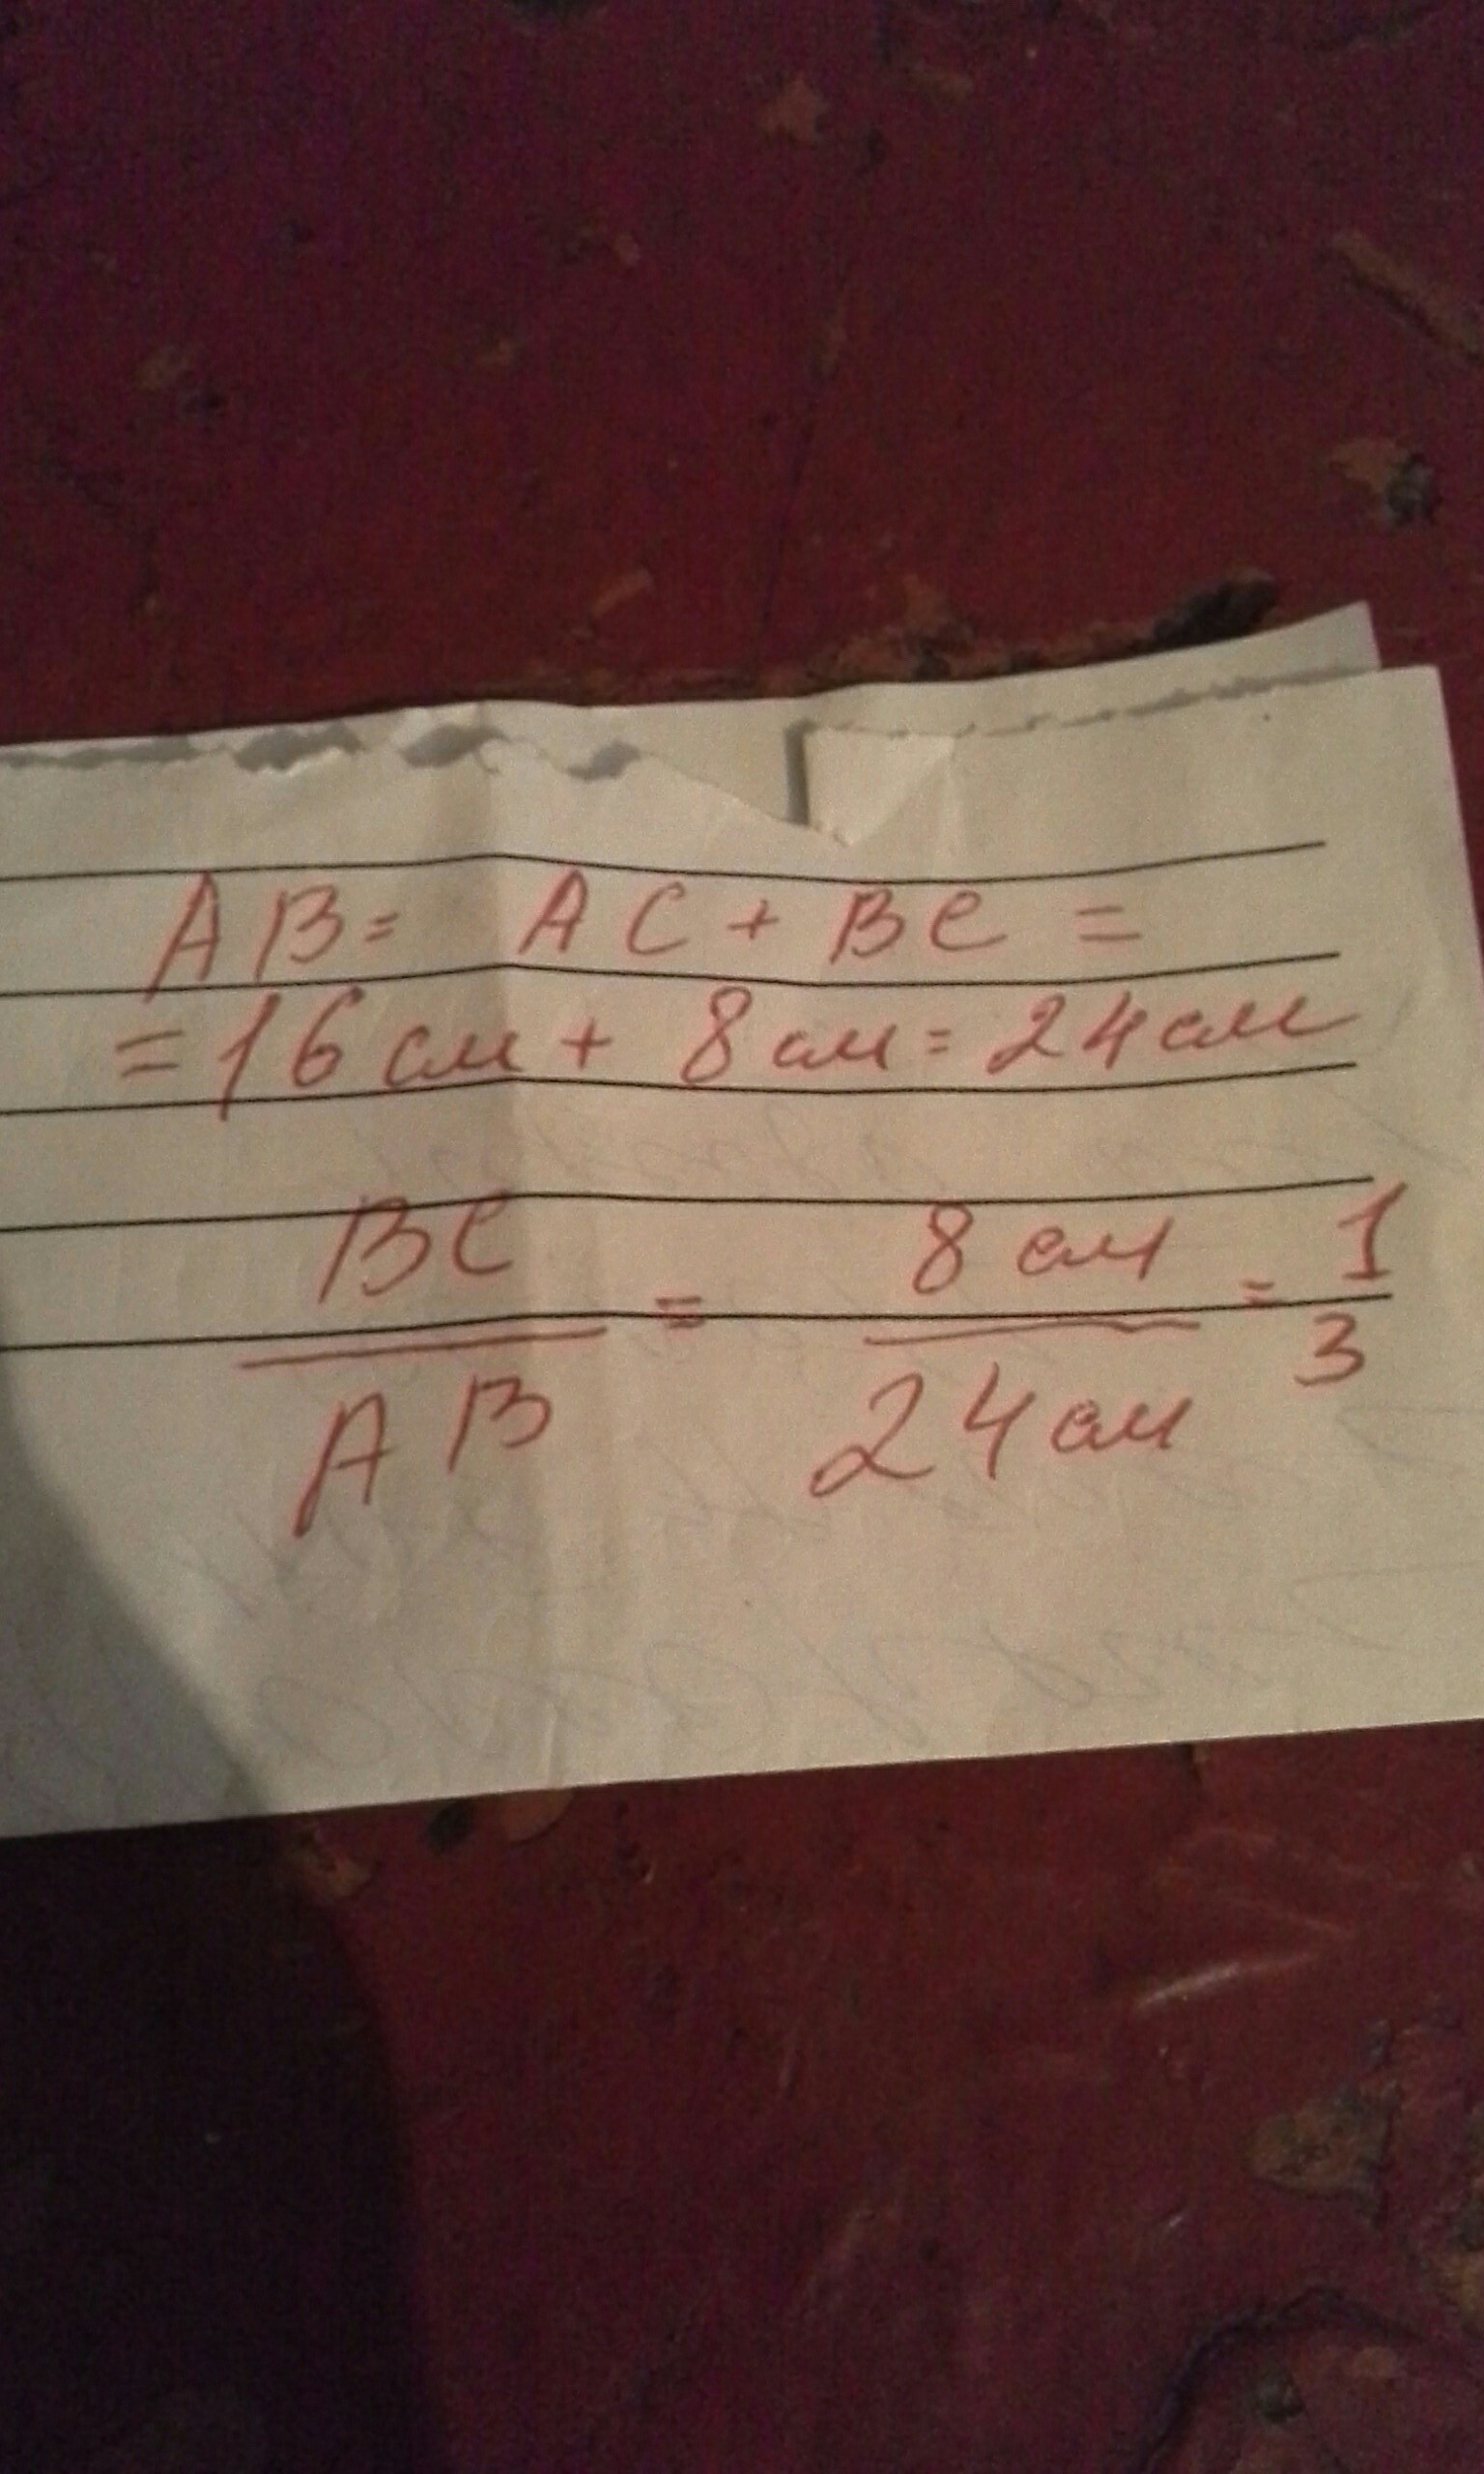 AB = AC + BC =
= 16 см + 8 см = 24 см
BC / AB = 8 см / 24 см = 1 / 3